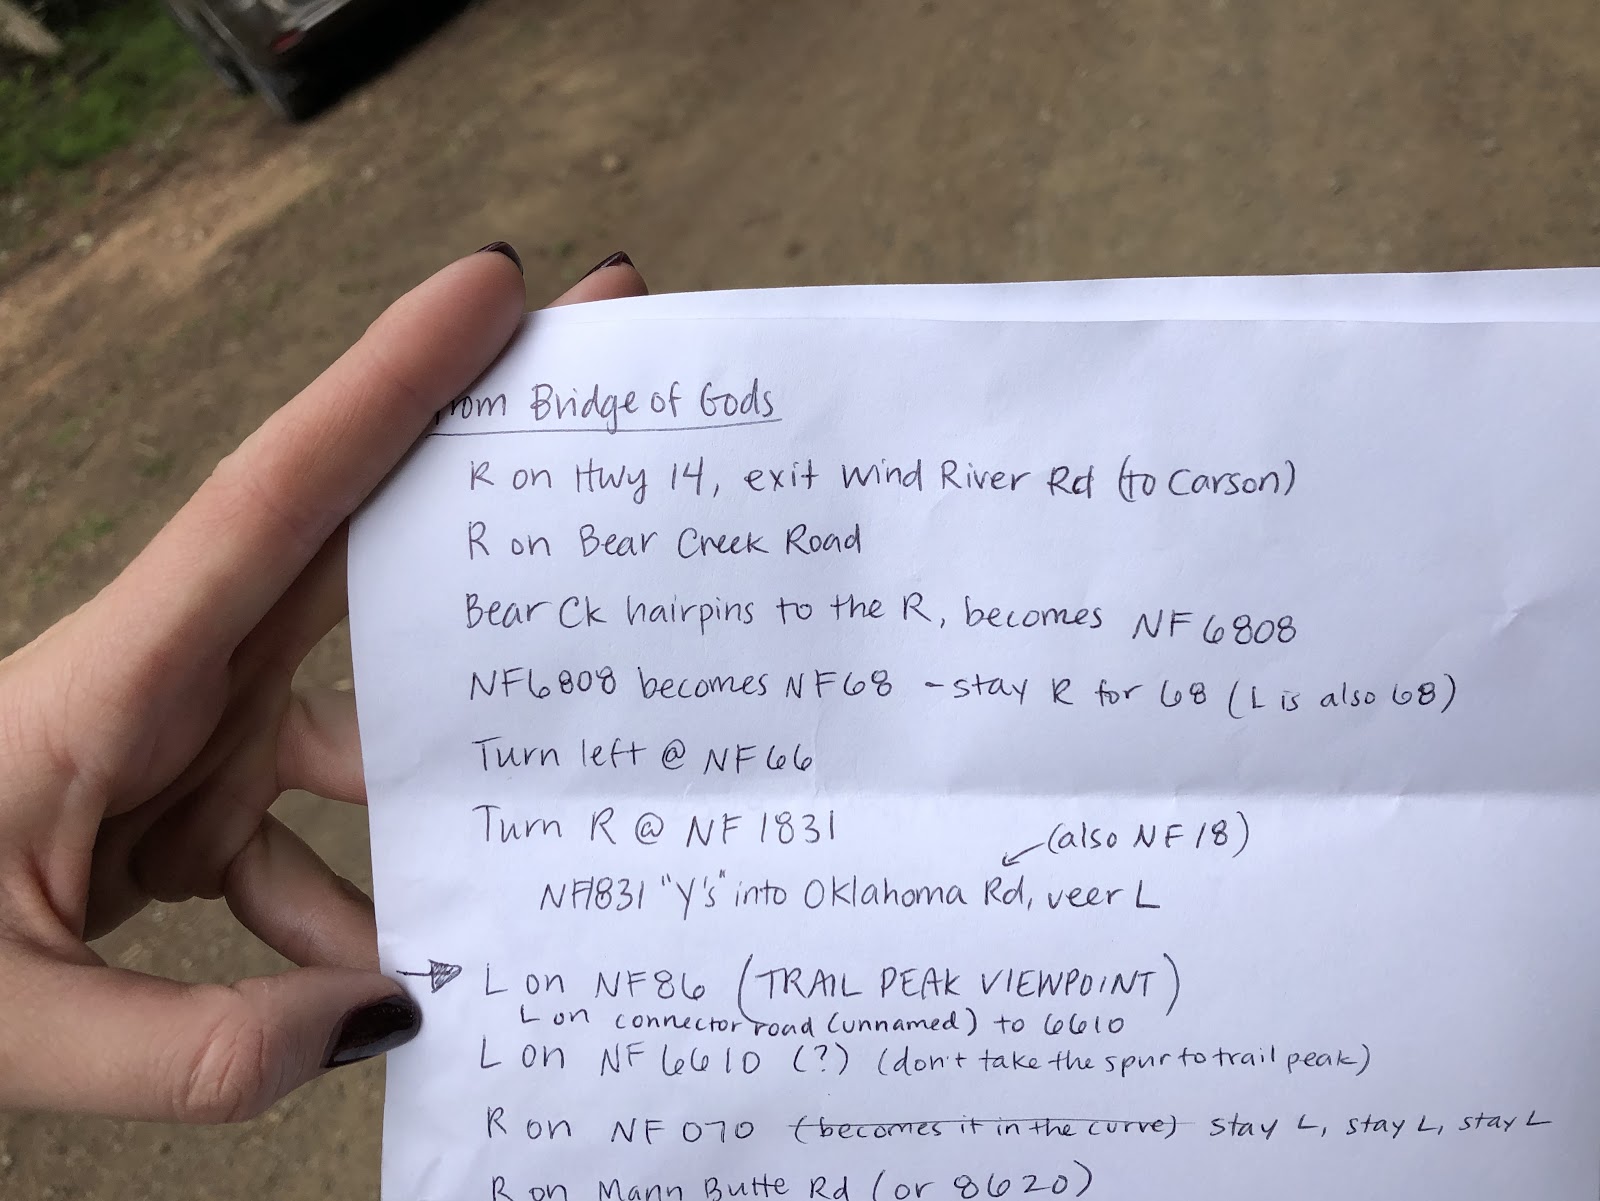 From Bridge of Gods
R on Hwy 14, exit Wind River Rd (to Carson)
R on Bear Creek Road
Bear Ck hairpins to the R, becomes NF 6808
NF6808 becomes NF68 - stay R for 68 (L is also 68)
Turn left @ NF66
Turn R @ NF 1831
(also NF 18)
NF1831 "Y's" into Oklahoma Rd, veer L
L on NF86 (TRAIL PEAK VIEWPOINT)
L on connector road (unnamed) to 6610
L on NF 6610 (?) (don't take the spur to trail peak)
R on NF 070 (becomes it in the curve) stay L, stay L, stay L
R on Mann Butte Rd (or 8620)